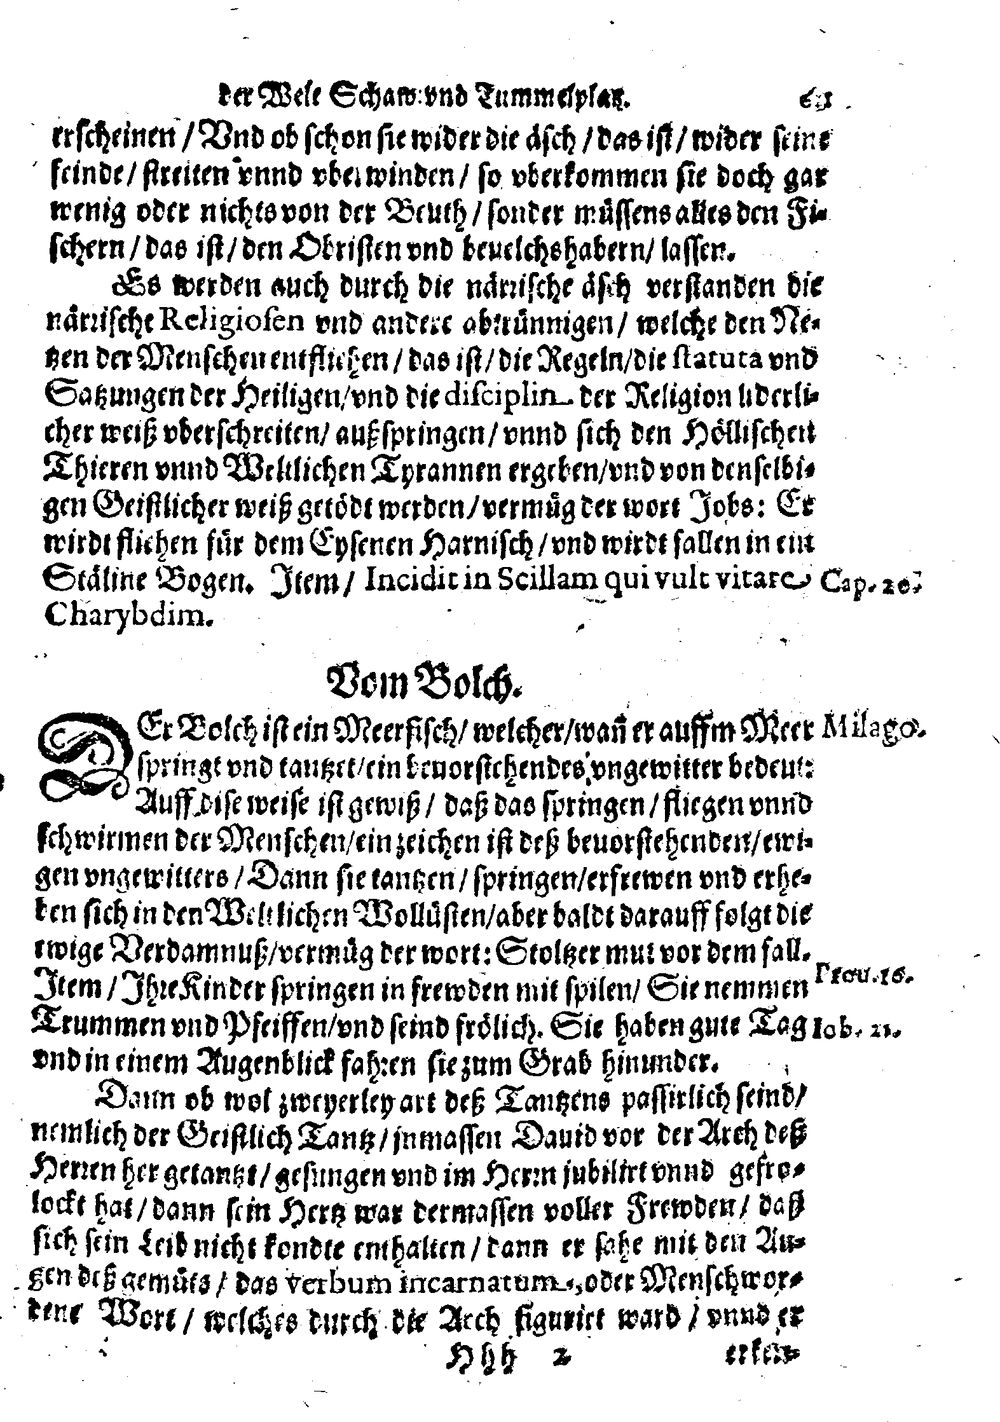 der Welt Schaw: vnd Tummelplatz.
erscheinen / Vnd ob schon sie wider die äsch / das ist / wider seine
feinde / streiten vnnd vberwinden / so vberkommen sie doch gar
wenig oder nichts von der Beuth / sonder müssens alles den Fi-
schern / das ist / den Obristen vnd beuelchshabern / lassen.
Es werden auch durch die närrische äsch verstanden die
närrische Religiosen vnd andere abtrünnigen / welche den Ne-
tzen der Menschen entfliehen / das ist / die Regeln / die statuta vnd
Satzungen der Heiligen / vnd die disciplin der Religion liderli-
cher weiß vberschreiten / außspringen / vnnd sich den Höllischen
Thieren vnnd Weltlichen Tyrannen ergeben / vnd von denselbi-
gen Geistlicher weiß getödt werden / vermüg der wort Jobs: Er
wirdt fliehen für dem Eysenen Harnisch / vnd wirdt fallen in ein
Stäline Bogen. Item / Incidit in Scillam qui vult vitare Cap. 20.
Charybdim.
Vom Bolch.
DEr Bolch ist ein Meerfisch / welcher / wañ er auffm Meer Milago.
springt vnd tantzet / ein beuorstehendes vngewitter bedeut:
Auff dise weise ist gewiß / daß das springen / fliegen vnnd
schwirmen der Menschen / ein zeichen ist deß beuorstehenden / ewi-
gen vngewitters / Dann sie tantzen / springen / erfrewen vnd erhe-
ben sich in den Weltlichen Wollüsten / aber baldt darauff folgt die
ewige Verdamnuß / vermüg der wort: Stoltzer mut vor dem fall.
Item / Ihre Kinder springen in frewden mit spilen / Sie nemmen Prou. 16.
Trummen vnd Pfeiffen / vnd seind frölich. Sie haben gute Tag Iob. 21.
vnd in einem Augenblick fahren sie zum Grab hinunder.
Dann ob wol zweyerley art deß Tantzens passirlich seind /
nemlich der Geistlich Tantz / inmassen Dauid vor der Arch deß
Herren her getantzt / gesungen vnd im Herrn jubilirt vnnd gefro-
lockt hat / dann sein Hertz war dermassen voller Frewden / daß
sich sein Leib nicht kondte enthalten / dann er sahe mit den Au-
gen deß gemüts / das verbum incarnatum, oder Menschwor-
dene Wort / welches durch die Arch figurirt ward / vnnd er
Hhh 2